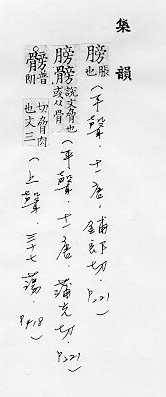 集韻
膀 也(平聲.十一唐.鋪郎切.P.221)
膀髈 說文脅也或从骨(平聲.十一唐.蒲光切.P.221)
髈 普朗切脅肉也文三(上聲.三十七蕩.P.418)